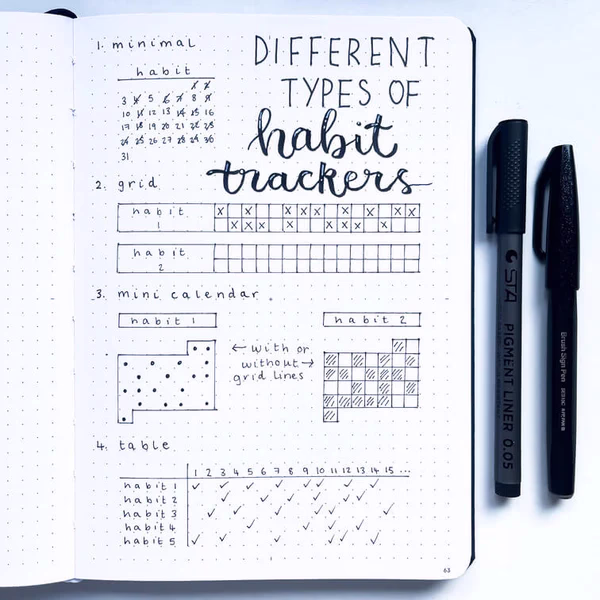 1. minimal
habit
1 2
3 4 5 6 7 8 9
10 11 12 13 14 15 16
17 18 19 20 21 22 23
24 25 26 27 28 29 30
31
DIFFERENT
TYPES OF
habit
trackers
2. grid
habit
1
habit
2
3. mini calendar
habit 1
habit 2
← with or
without →
grid lines
4. table
1 2 3 4 5 6 7 8 9 10 11 12 13 14 15 ...
habit 1
habit 2
habit 3
habit 4
habit 5
63
STA PIGMENT LINER 0.05
Brush Sign Pen